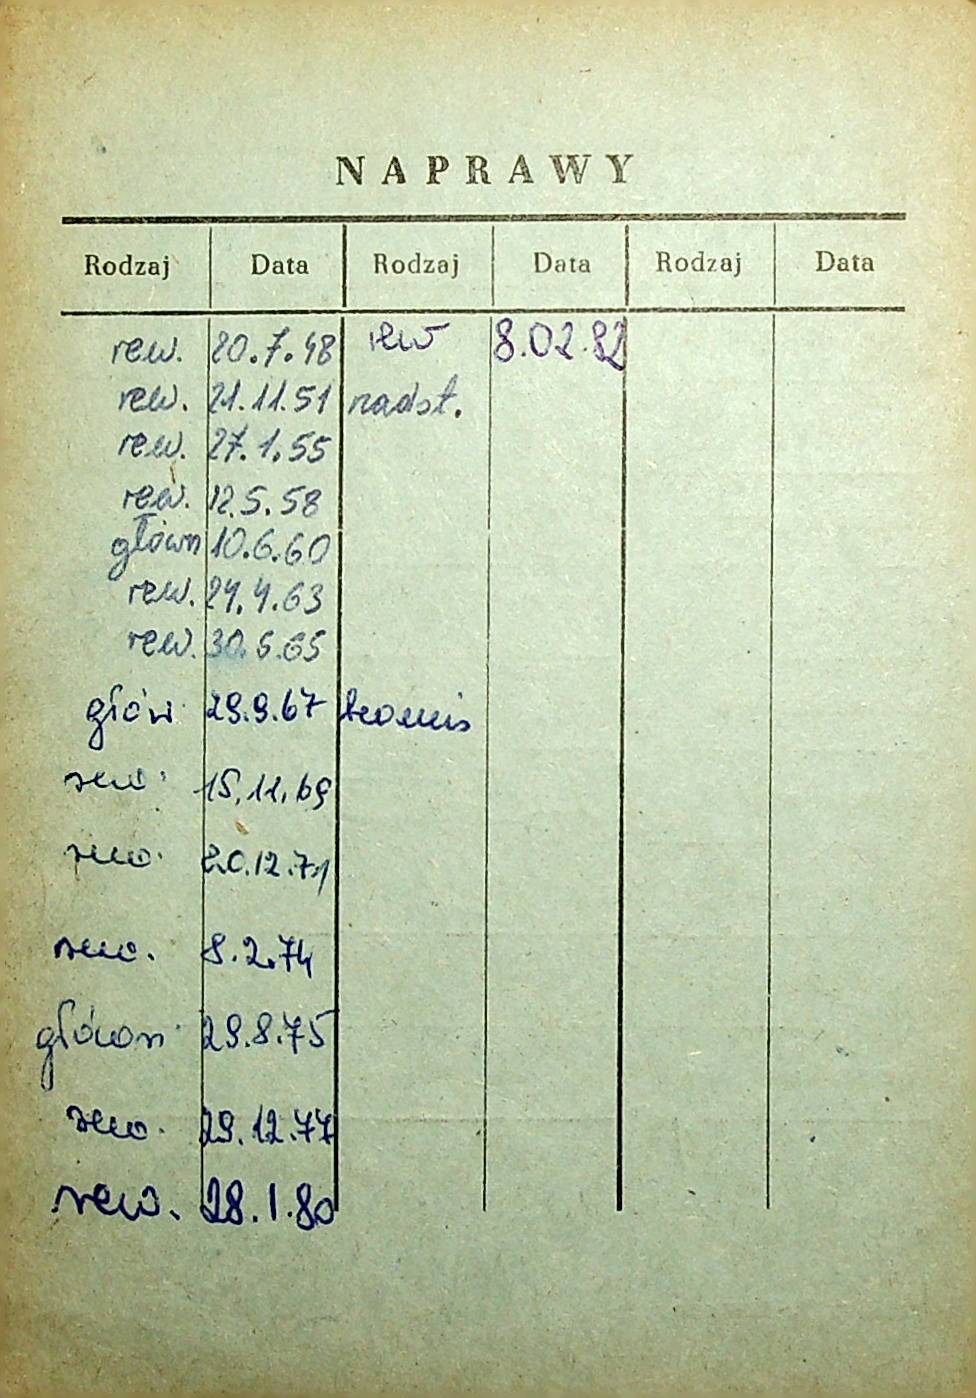 NAPRAWY
Rodzaj Data Rodzaj Data Rodzaj Data
rew. 20.7.48 rew 8.02.82
rew. 21.11.51 nadst.
rew. 27.1.55
rew. 12.5.58
główn 10.6.60
rew. 24.4.63
rew. 30.6.65
głów. 29.9.67
rew. 15.11.69
rew. 20.12.71
rew. 8.2.74
główn. 29.8.75
rew. 29.12.77
rew. 28.1.80